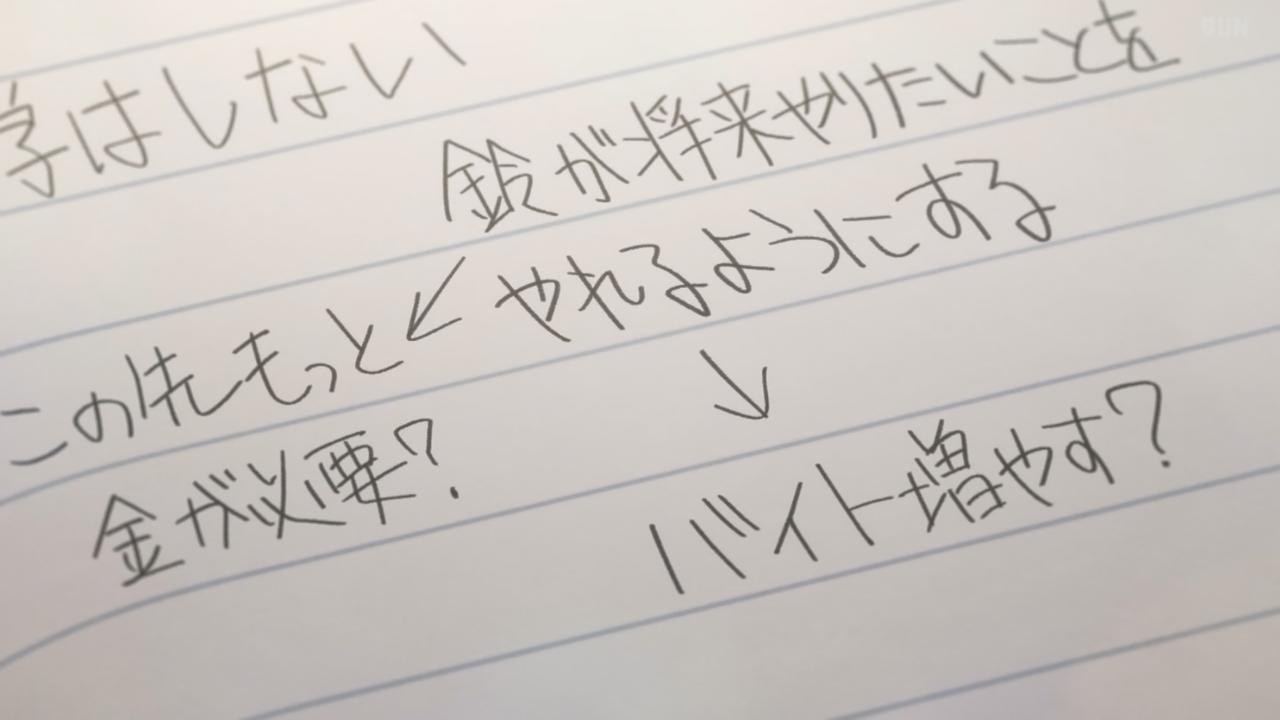 学はしない
鈴が将来やりたいことを
やれるようにする
↙
↘
この先もっと
金が必要?
バイト増やす?
SUN